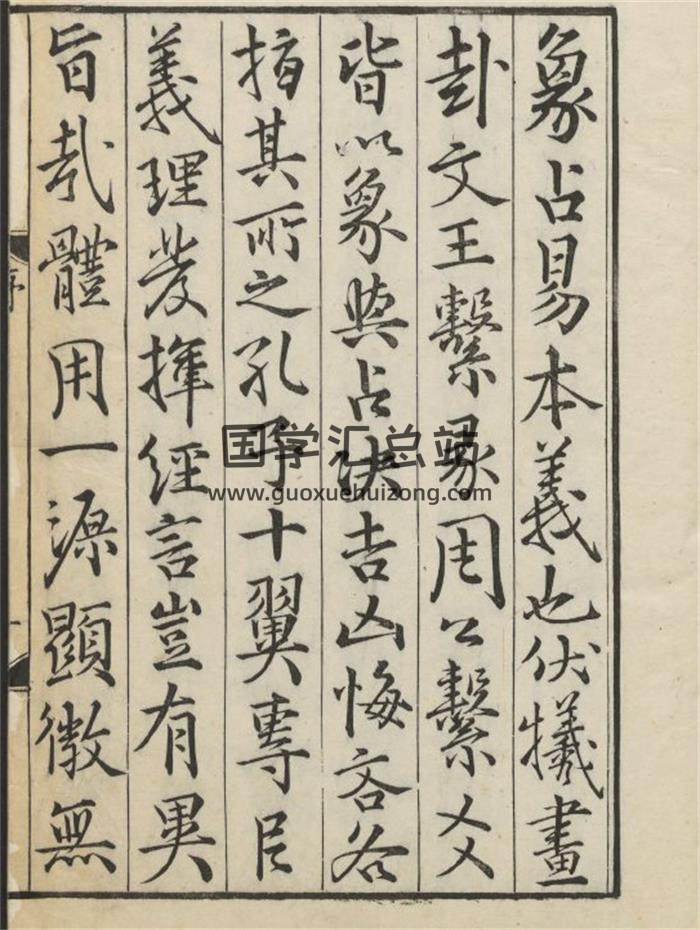 象占易本義也伏犧畫
卦文王繫彖周公繫爻
皆以象與占決吉凶悔吝各
指其所之孔子十翼專以
義理發揮經言豈有異
旨哉體用一源顯微無
序
国学汇总站
www.guoxuehuizong.com